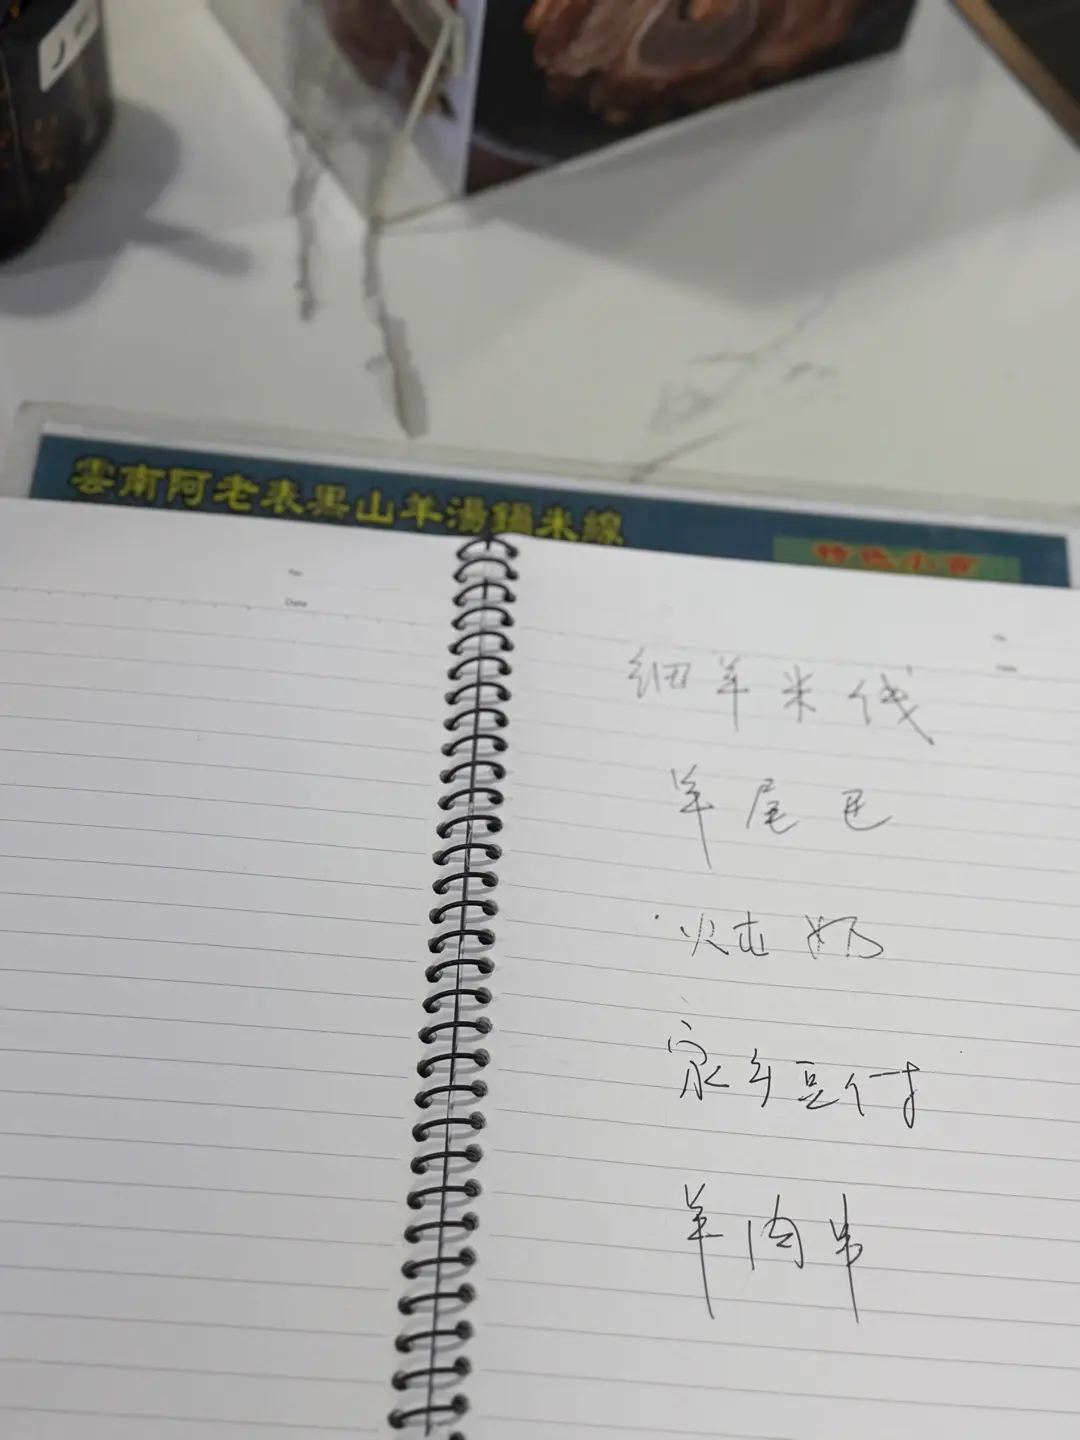 雲南阿老表黑山羊湯鍋米線
Date
细羊米线
羊尾巴
炖奶
家乡豆付
羊肉串